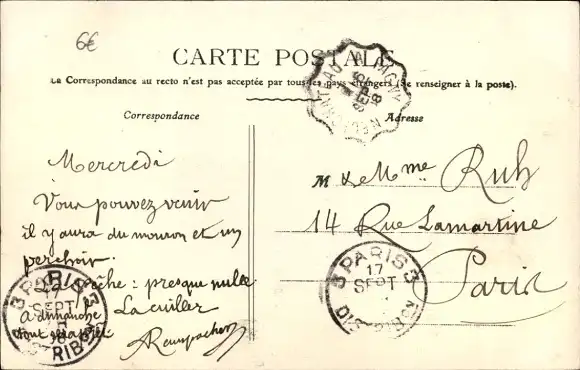 6€
CARTE POSTALE
La Correspondance au recto n'est pas acceptée par tous les pays étrangers (Se renseigner à la poste).
Correspondance
Adresse
Mercredi
Vous pouvez venir
il y aura du mouron et un
perchoir.
pêche : presque nulle
La cuiller
à dimanche
M & Mme Ruh
14 Rue Lamartine
Paris
3 PARIS 3
17
SEPT
DIS
3 PARIS 3
17
SEPT
DIS